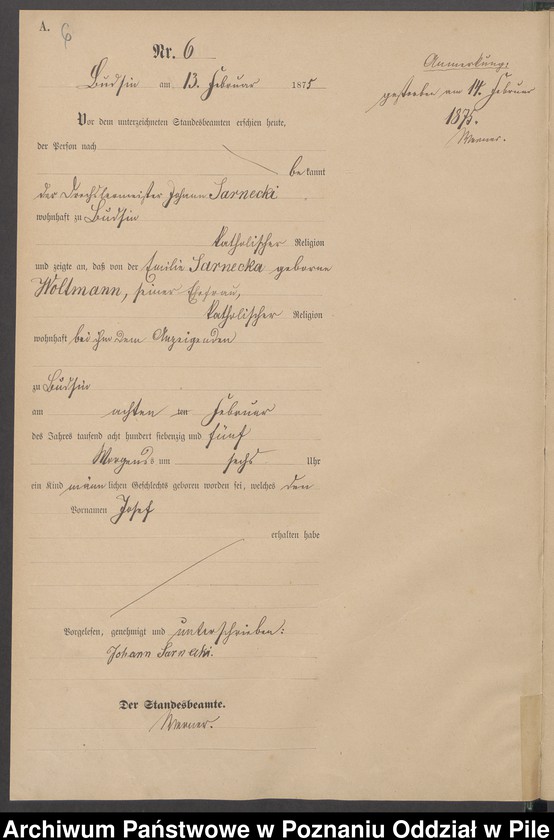 A.
6
Nr. 6
Budsin am 13. Februar 1875
Vor dem unterzeichneten Standesbeamten erschien heute,
der Person nach
bekannt
der Drechslermeister Johann Sarnecki
wohnhaft zu Budsin
katholischer Religion
und zeigte an, daß von der Emilie Sarnecka geborne
Woltmann, seiner Ehefrau,
katholischer Religion
wohnhaft bei ihm dem Anzeigenden
zu Budsin
am achten ten Februar
des Jahres tausend acht hundert siebenzig und fünf
Morgens um sechs Uhr
ein Kind männlichen Geschlechts geboren worden sei, welches den
Vornamen Josef
erhalten habe
Vorgelesen, genehmigt und unterschrieben:
Johann Sarnecki.
Der Standesbeamte.
Werner.
Anmerkung:
gestorben am 14. Februar
1875.
Werner.
Archiwum Państwowe w Poznaniu Oddział w Pile